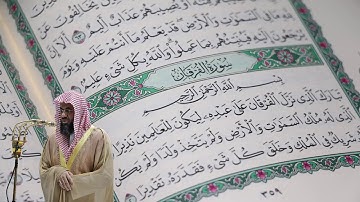 أَلَا إِنَّ
لِلَّهِ مَا فِي السَّمَٰوَٰتِ وَالْأَرْضِ قَدْ يَعْلَمُ مَا أَنتُمْ عَلَيْهِ
وَيَوْمَ يُرْجَعُونَ إِلَيْهِ فَيُنَبِّئُهُم بِمَا عَمِلُوا وَاللَّهُ بِكُلِّ شَيْءٍ عَلِيمٌ
سُورَةُ الْفُرْقَانِ
بِسْمِ اللَّهِ الرَّحْمَٰنِ الرَّحِيمِ
تَبَارَكَ الَّذِي نَزَّلَ الْفُرْقَانَ عَلَىٰ عَبْدِهِ لِيَكُونَ لِلْعَالَمِينَ نَذِيرًا
الَّذِي لَهُ مُلْكُ السَّمَٰوَٰتِ وَالْأَرْضِ وَلَمْ يَتَّخِذْ وَلَدًا وَلَمْ يَكُن
لَّهُ شَرِيكٌ فِي الْمُلْكِ وَخَلَقَ كُلَّ شَيْءٍ فَقَدَّرَهُ تَقْدِيرًا
٣٥٩